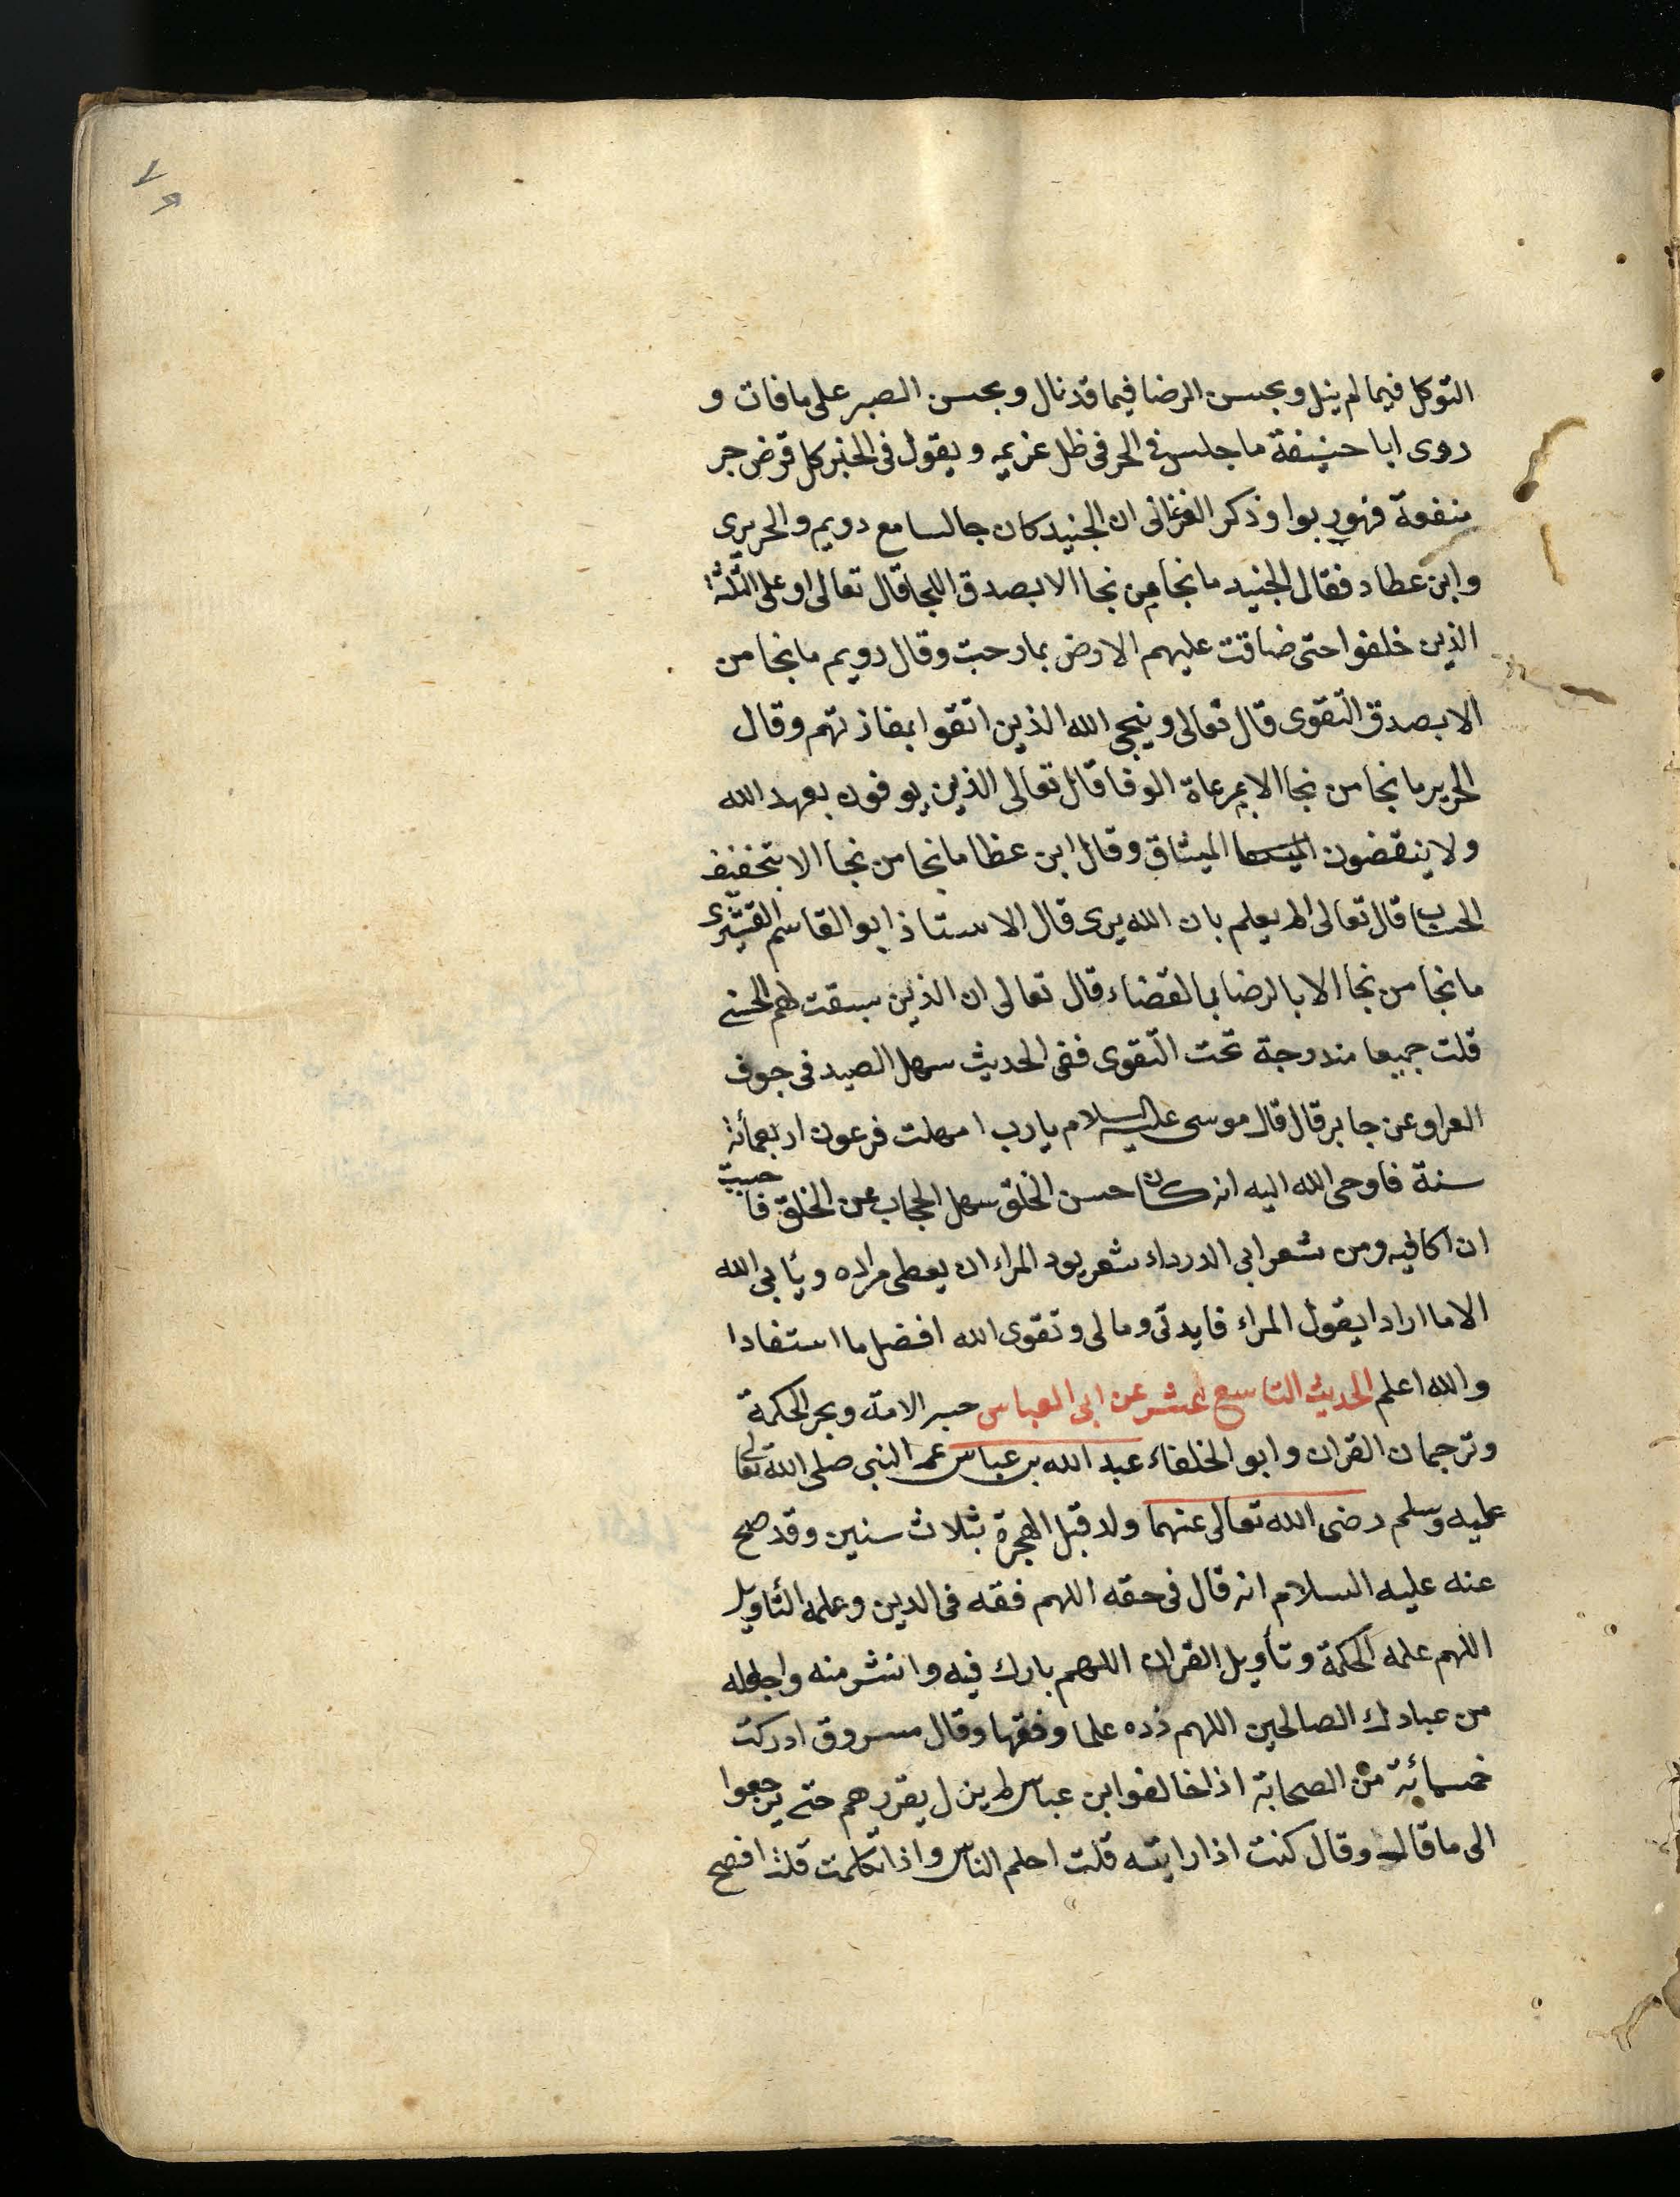 التوكل فيما لم ينل وبحسن الرضا فيما قد نال وبحسن الصبر على ما فات و
روى ابا حنيفة ما جلس في الحر في ظل غريمه ويقول في الخبر كل قرض جر
منفعة فهو ربوا وذكر الفرغانى ان الجنيد كان جالسا مع رويم والحريرى
وابن عطاء فقال الجنيد ما نجا من نجا الا بصدق اللجا قال تعالى او على الثلثة
الذين خلفوا حتى ضاقت عليهم الارض بما رحبت وقال رويم ما نجا من
الا بصدق التقوى قال تعالى وينجى الله الذين اتقوا بمفازتهم وقال
الحرير ما نجا من نجا الا بمرعاة الوفا قال تعالى الذين يوفون بعهد الله
ولا ينقضون الميثاق وقال ابن عظا ما نجا من نجا الا بتخفيف
الحساب قال تعالى الم يعلم بان الله يرى قال الاستاذ ابو القاسم القشيرى
ما نجا من نجا الا بالرضا بالقضاء قال تعالى ان الذين سبقت لهم الحسنى
قلت جميعا مندرجة تحت التقوى ففى الحديث سهل الصيد فى جوف
العرا وعن جابر قال قال موسى عليه السلام يا رب امهلت فرعون اربعمائة
سنة فاوحى الله اليه انه كان حسن الخلق سهل الحجاب عن الخلق فاحببت
ان اكافيه ومن شعر ابى الدرداء شعر يود المراء ان يعطى مراده ويأبى الله
الا ما ارادا يقول المراء فايدتى ومالى وتقوى الله افضل ما استفادا
والله اعلم الحديث التاسع عشر عن ابى العباس حبر الامة وبحر الحكمة
وترجمان القران وابو الخلفاء عبد الله بن عباس عم النبى صلى الله تعالى
عليه وسلم رضى الله تعالى عنهما ولد قبل الهجرة بثلاث سنين وقد صح
عنه عليه السلام انه قال فى حقه اللهم فقه فى الدين وعلمه التأويل
اللهم علمه الحكمة وتأويل القران اللهم بارك فيه وانشر منه واجعله
من عبادك الصالحين اللهم زده علما وفقها وقال مسروق ادركت
خمسمائة من الصحابة اذا خالفوا ابن عباس لم يزل يقررهم حتى يرجعوا
الى ما قال وقال كنت اذا رايته قلت احلم الناس واذا تكلمت قلت افصح